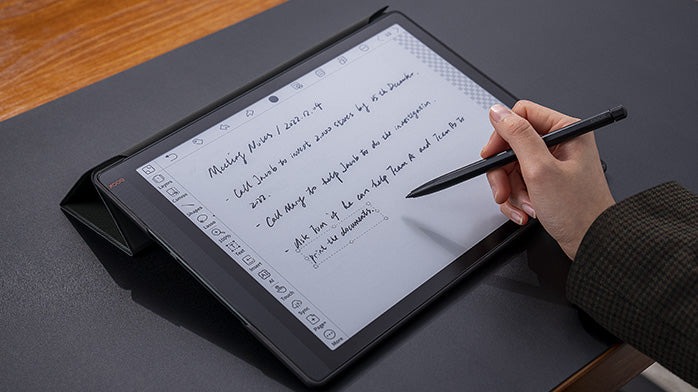 Meeting Notes / 2022.12.04
- Call Jacob to invest 2,000 stores by 15th December.
2022.
- Call Mary to help Jacob to do the investigation.
- Ask Tom if he can help Team A and Team B to
print the documents.
Layers
Canvas
Shapes
Lasso
100%
Text
Insert
AI
Touch
Sync
Page+
More